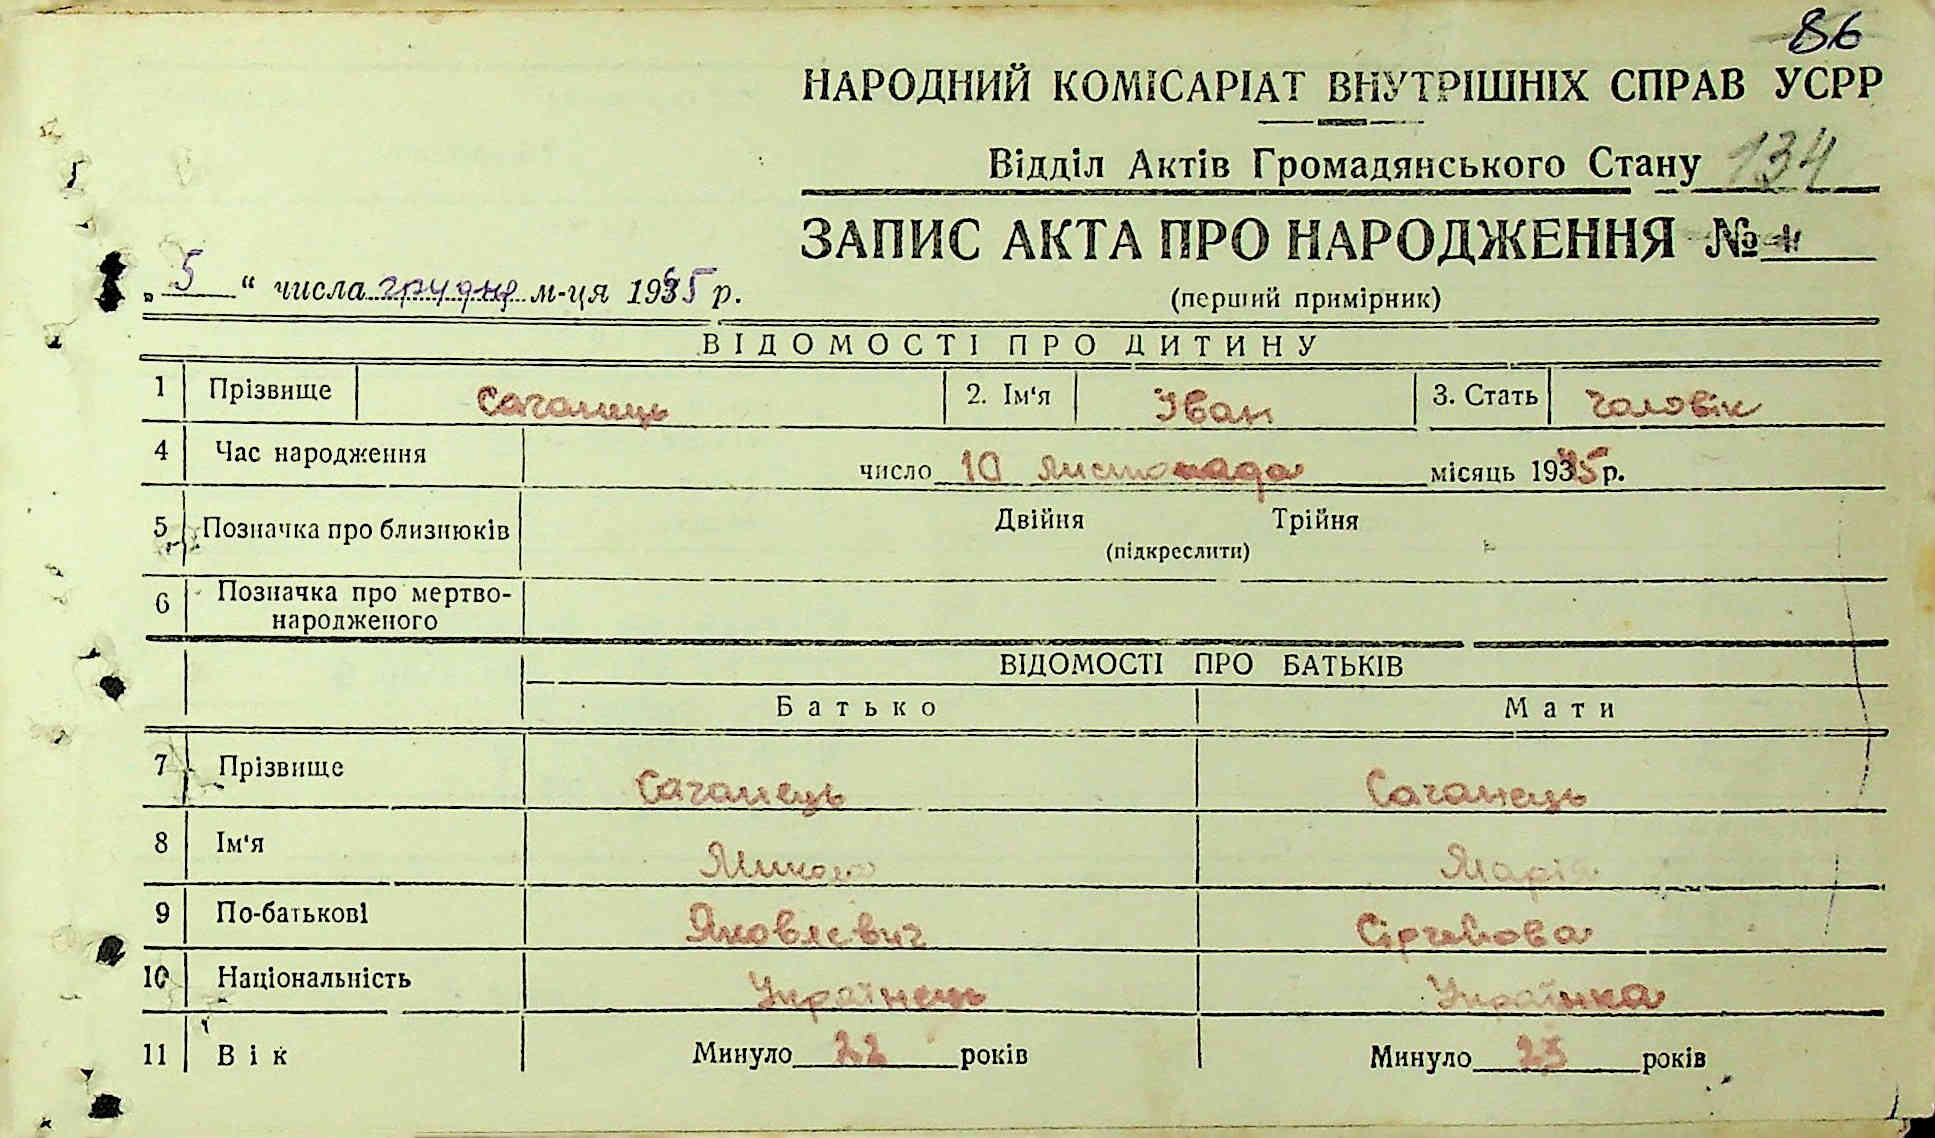 86
НАРОДНИЙ КОМІСАРІАТ ВНУТРІШНІХ СПРАВ УСРР
Відділ Актів Громадянського Стану 134
ЗАПИС АКТА ПРО НАРОДЖЕННЯ №
„ 5 “ числа грудня м-ця 1935 р.
(перший примірник)
ВІДОМОСТІ ПРО ДИТИНУ
1 Прізвище Саганець 2. Ім‘я Іван 3. Стать чоловік
4 Час народження число 10 листопада місяць 1935 р.
5 Позначка про близнюків Двійня Трійня
(підкреслити)
6 Позначка про мертво-
народженого
ВІДОМОСТІ ПРО БАТЬКІВ
Батько Мати
7 Прізвище Саганець Саганець
8 Ім‘я Микола Марія
9 По-батькові Яковлєвич
10 Національність Українець Українка
11 Вік Минуло 22 років Минуло 23 років